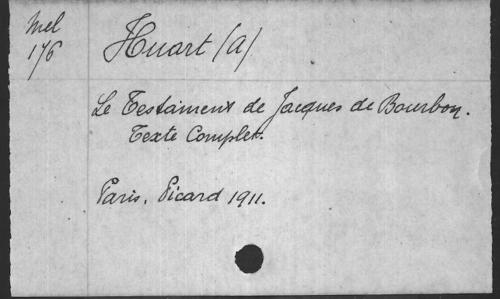 Mel
176
Huart (A)
Le Testament de Jacques de Bourbon.
Texte Complet.
Paris, Picard 1911.